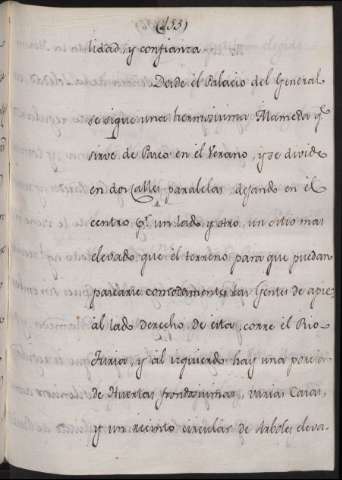 (133)
lidad, y confianza
Desde el Palacio del General
se sigue una hermosisima Alameda q.e
sirve de Paseo en el Verano, y se divide
en dos Calles paralelas dejando en el
centro p.r un lado y otro, un sitio mas
elevado que el terreno para que puedan
pasearse comodamente las Gentes de a pie
al lado derecho de esta, corre el Rio
Turia, y al izquierdo hay una porcion
de Huertas frondosisimas, varias Casas,
y un recinto circular de Arboles eleva-